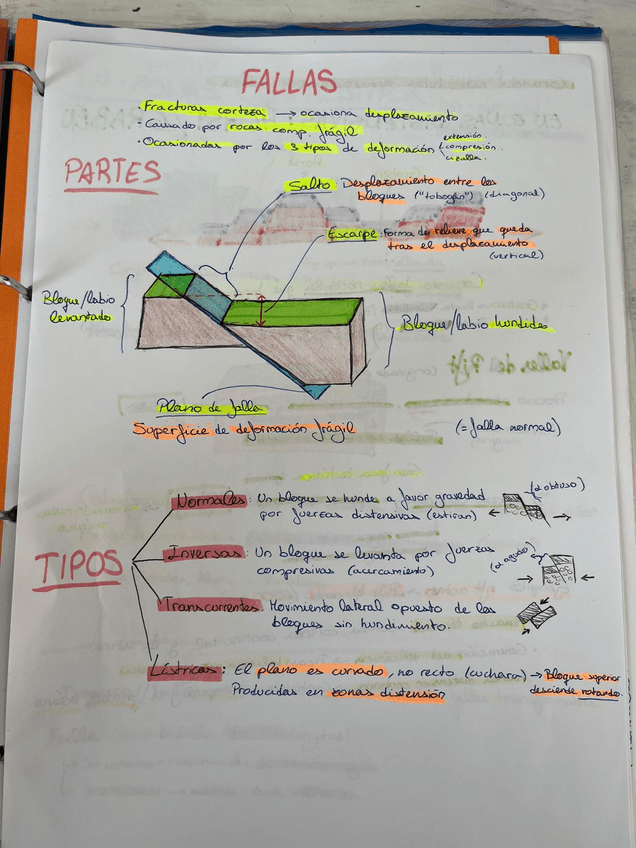 FALLAS
· Fracturas corteza → ocasiona desplazamiento
· Causado por rocas comp. frágil
· Ocasionadas por los 3 tipos de deformación
extensión.
compresión.
cizalla.
PARTES
Salto: Desplazamiento entre los
bloques ("tobogán") (diagonal)
Escarpe: Forma de relieve que queda
tras el desplazamiento
(vertical)
Bloque/labio
levantado
Bloque/labio hundido
Plano de falla
Superficie de deformación frágil
(= falla normal)
TIPOS
Normales: Un bloque se hunde a favor gravedad
por fuerzas distensivas (estiran)
(α obtuso)
Inversas: Un bloque se levanta por fuerzas
compresivas (acercamiento)
(α agudo)
Transcurrentes: Movimiento lateral opuesto de los
bloques sin hundimiento.
Lístricas: El plano es curvado, no recto (cuchara) → Bloque superior
Producidas en zonas distensión
desciende rotando.